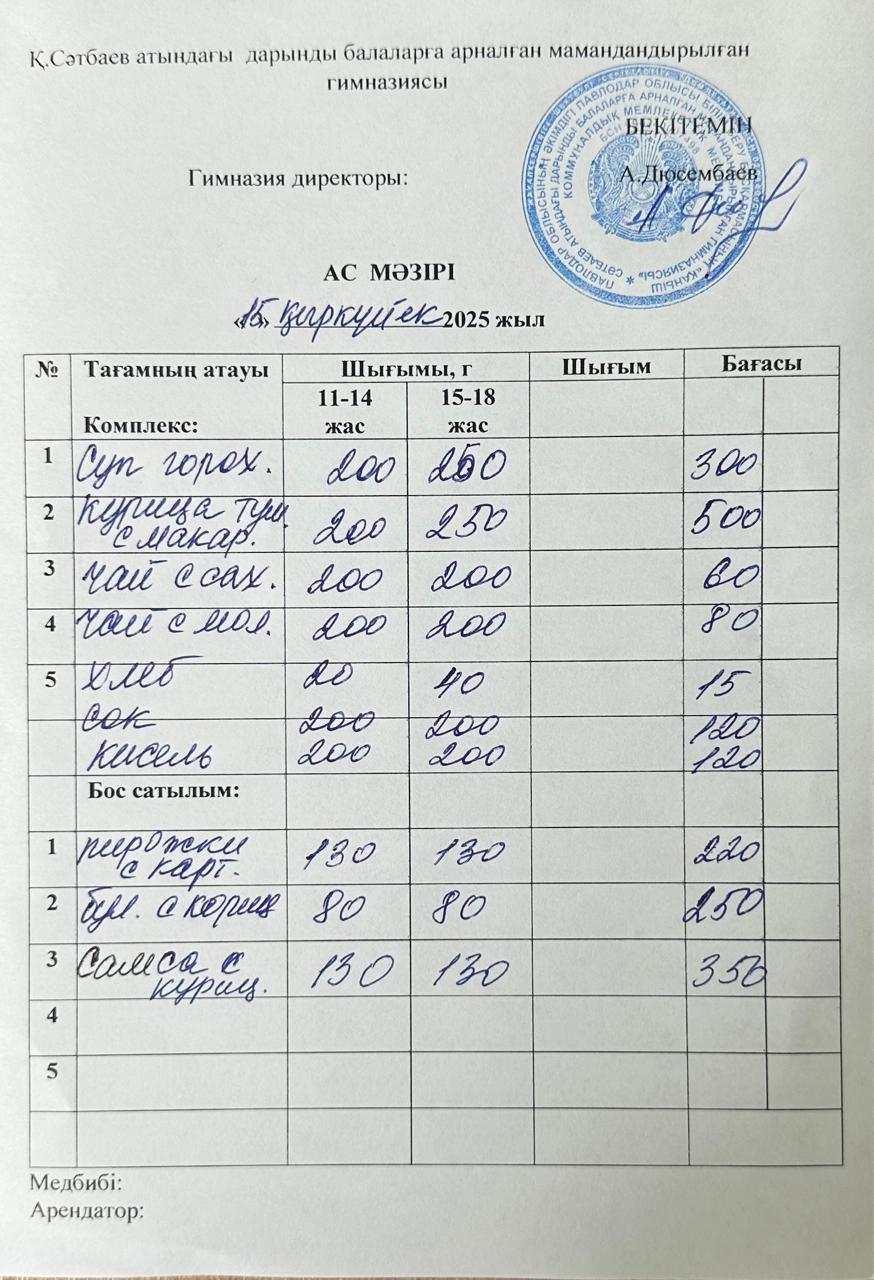 Қ.Сәтбаев атындағы дарынды балаларға арналған мамандандырылған
гимназиясы
БЕКІТЕМІН
Гимназия директоры: А.Дюсембаев
АС МӘЗІРІ
«15» қыркүйек 2025 жыл
№ Тағамның атауы Шығымы, г Шығым Бағасы
Комплекс: 11-14 жас 15-18 жас
1 Суп горох. 200 250 300
2 Курица туш. с макар. 200 250 500
3 Чай с сах. 200 200 60
4 Чай с мол. 200 200 80
5 Хлеб 20 40 15
сок 200 200 120
кисель 200 200 120
Бос сатылым:
1 пирожки с карт. 130 130 220
2 бул. с кориц 80 80 250
3 Самса с куриц. 130 130 350
4
5
Медбибі:
Арендатор: